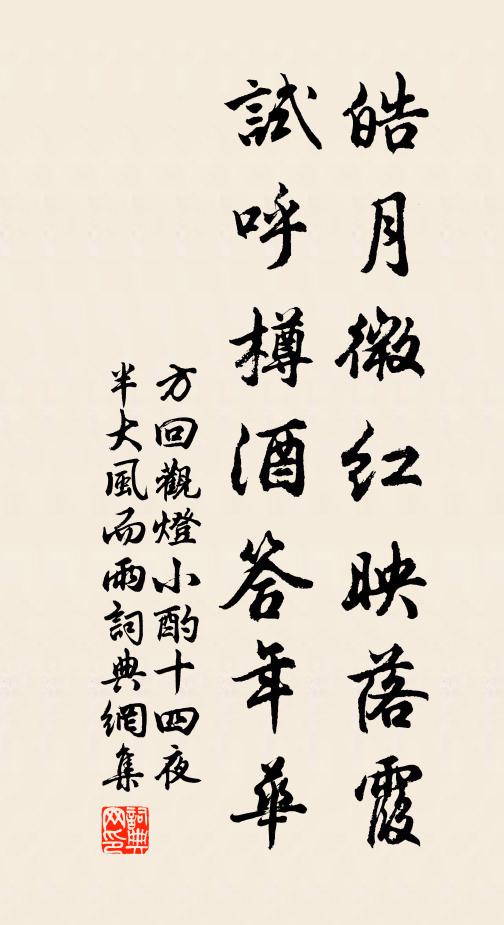 皓月微紅映落霞
試呼樽酒答年華
方回觀燈小酌十四夜
半大風而雨詞典網集
詞典
网印